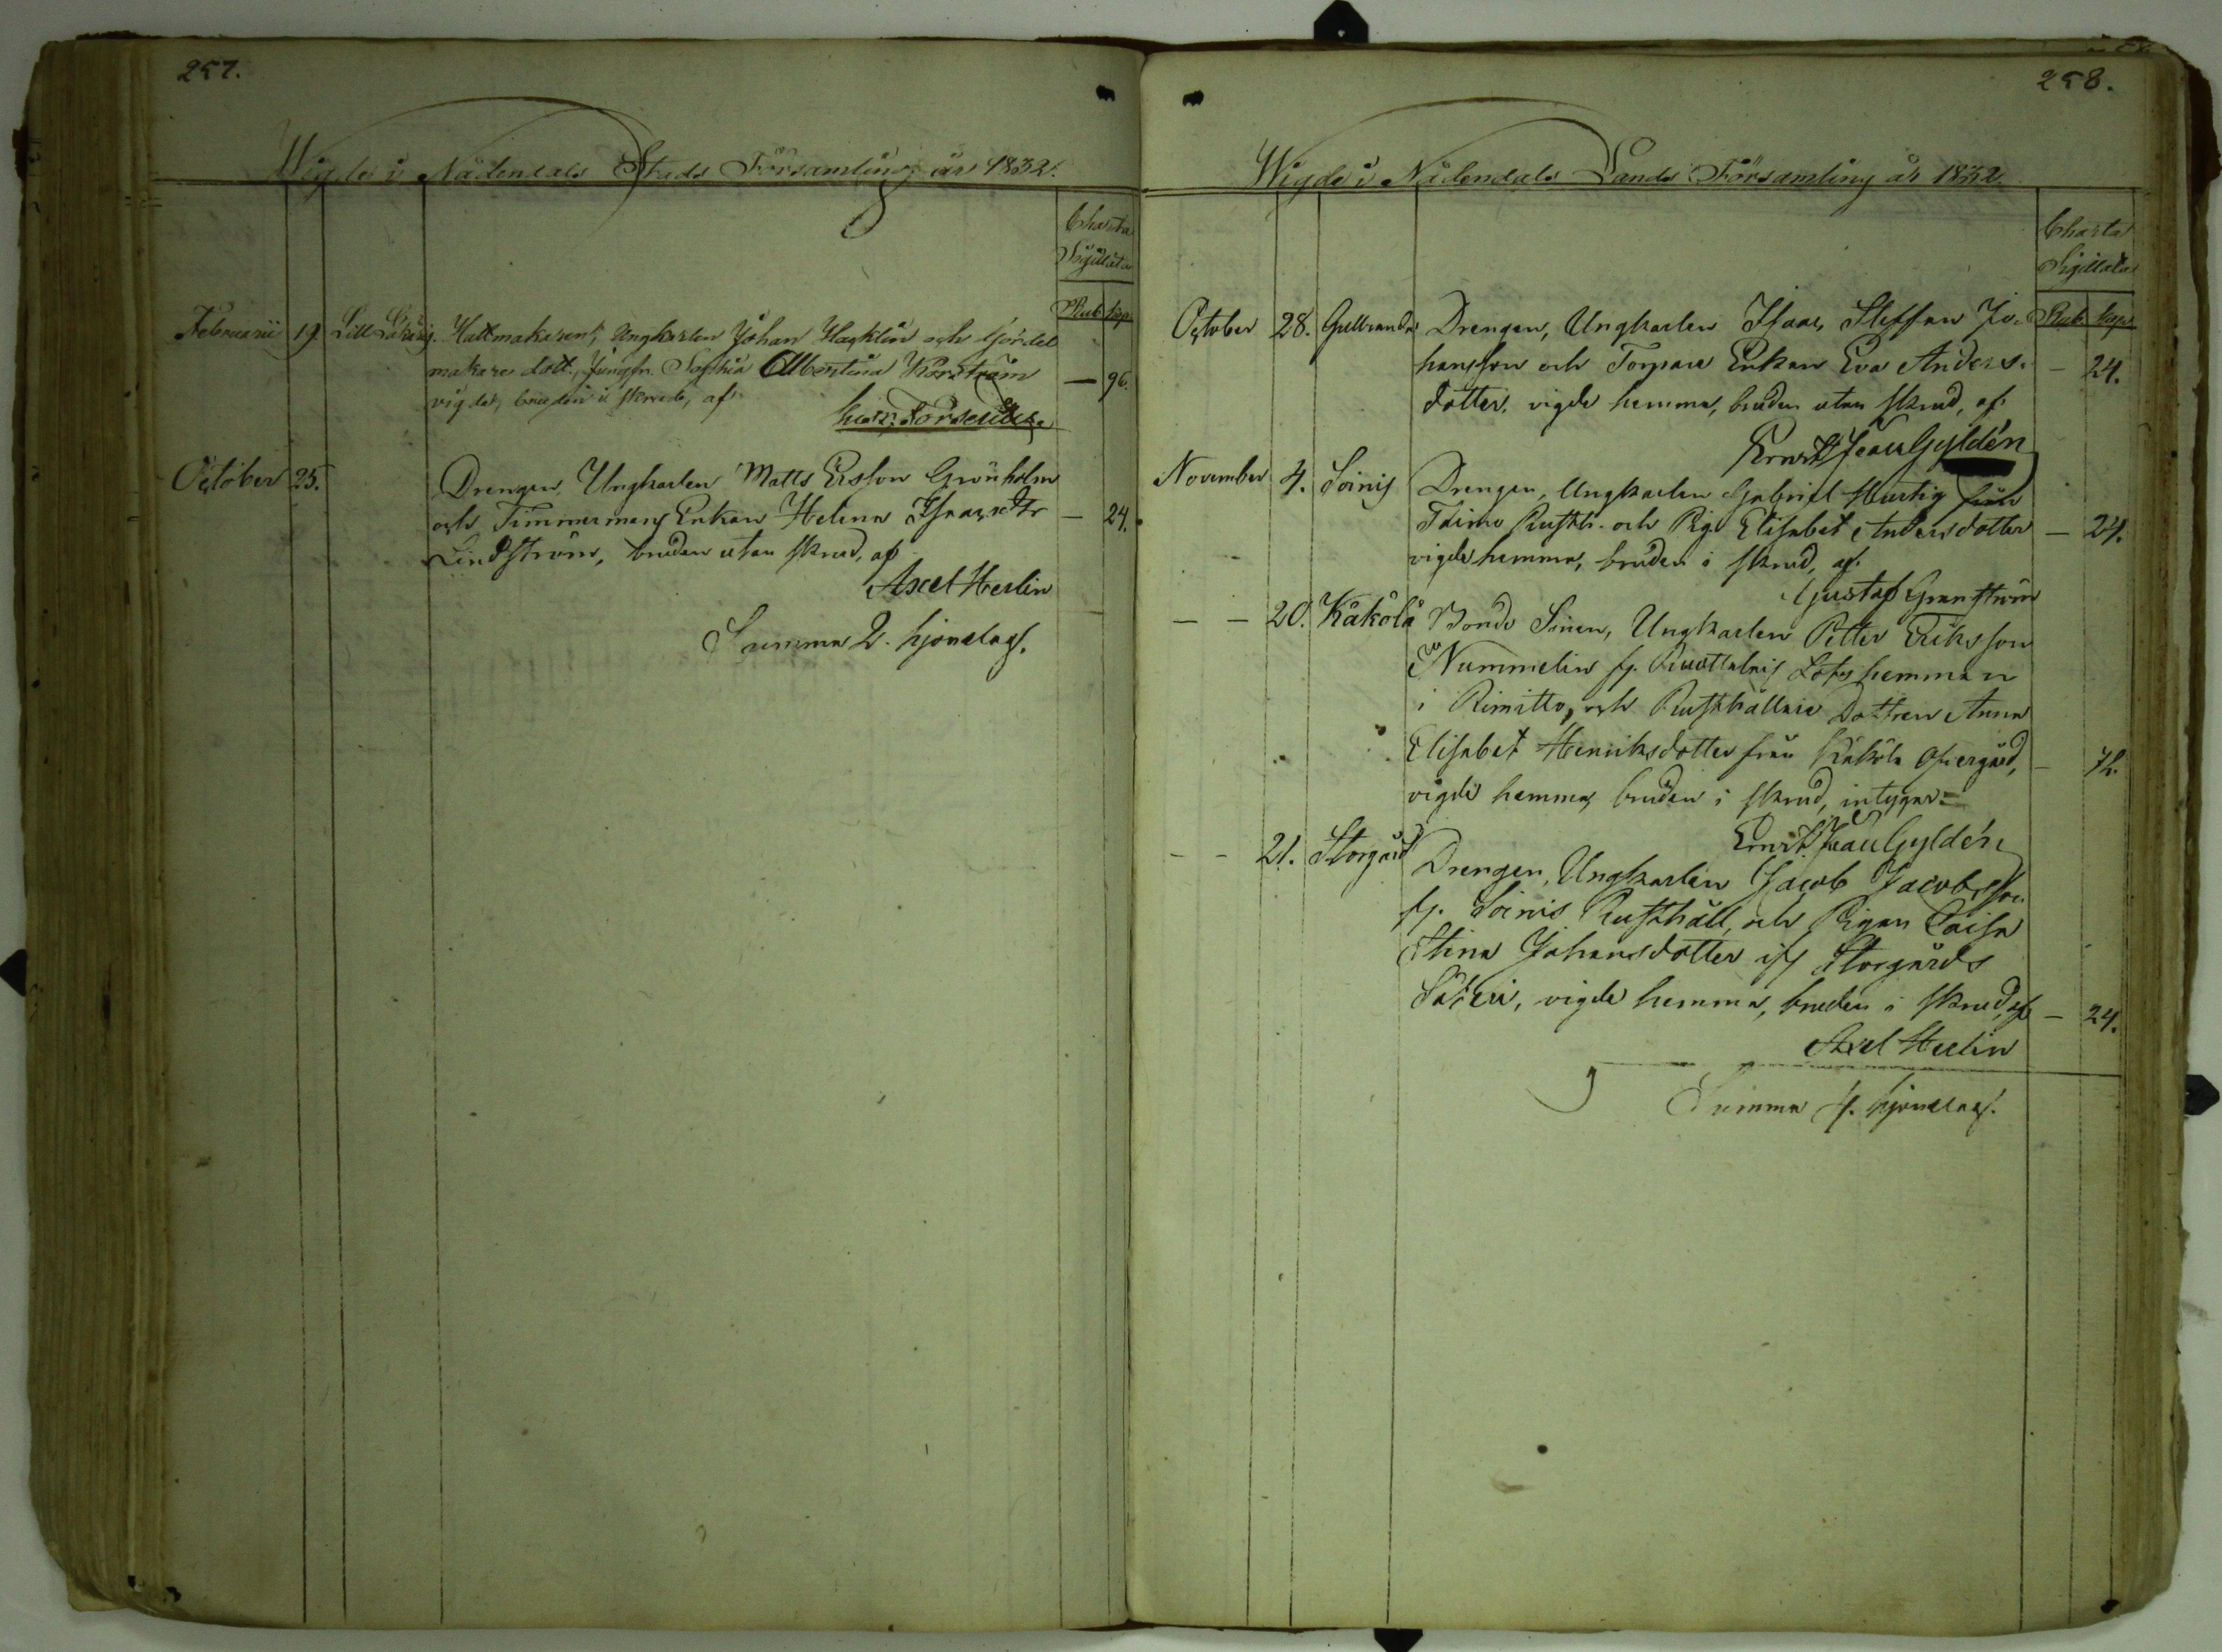 257.
Wigde i Nådendals Stads Församling år 1832.
Charta
Sigillata
Rub. kop.
Februarii 19. Hattmakaren, Ungkarlen Johan Hacklin och Gördel
makare dott., Jungfr. Sophia Albertina
vigde, bruden i skrud, af — 96.
October 25. Drengen, Ungkarlen Matts Ersson Grönholm
och Timmermans Enkan Helena Isaacsdtr — 24.
Lindström, bruden utan skrud, af
Axel Herlin
Summa 2. hjonelag.
258.
Wigde i Nådendals Lands Församling år 1832
Charta
Sigillata
Rub. kop.
October 28. Gullranda Drengen, Ungkarlen Isaac Steffan Jo-
hansson och Torpare Enkan Eva Anders- — 24.
dotter, vigde hemma, bruden utan skrud, af
Ernst Jean Gyldén
November 4. Soinis Drengen, Ungkarlen Gabriel Hurtig från
Taimo Rusth. och Pig. Elisabet Andersdotter — 24.
vigde hemma, bruden i skrud, af
Gustaf Granström
— — 20. Käkölä Bonde Sonen, Ungkarlen Petter Eriksson
Nummelin fr. hemman
i Rimitto, och Rusthållare Dottren Anna
Elisabet Henriksdotter från Käkölä Öfvergård, — 72.
vigde hemma, bruden i skrud, intygar
Ernst Jean Gyldén
— — 21. Storgård Drengen, Ungkarlen Jacob Jacobsson
fr. Soinis Rusthåll, och Pigan Caisa
Stina Johansdotter ifr. Storgårds
Säteri, vigde hemma, bruden i skrud, af — 24.
Axel Herlin
Summa 4. hjonelag.